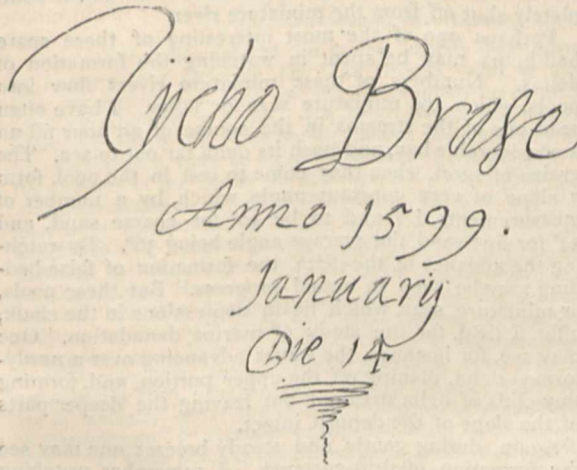 Tÿcho Brahe
Anno 1599.
Januarij
Die 14